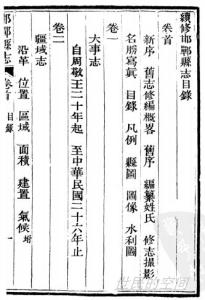 續修邯鄲縣志目錄
卷首
新序 舊志修編概略 舊序 編纂姓氏 修志攝影
名勝寫真 目錄 凡例 縣圖 圖像 水利圖
卷一
大事志
自周敬王二十年起 至中華民國二十六年止
卷二
疆域志
沿革 位置 區域 面積 建置 氣候增
邯鄲縣志 卷首 目錄